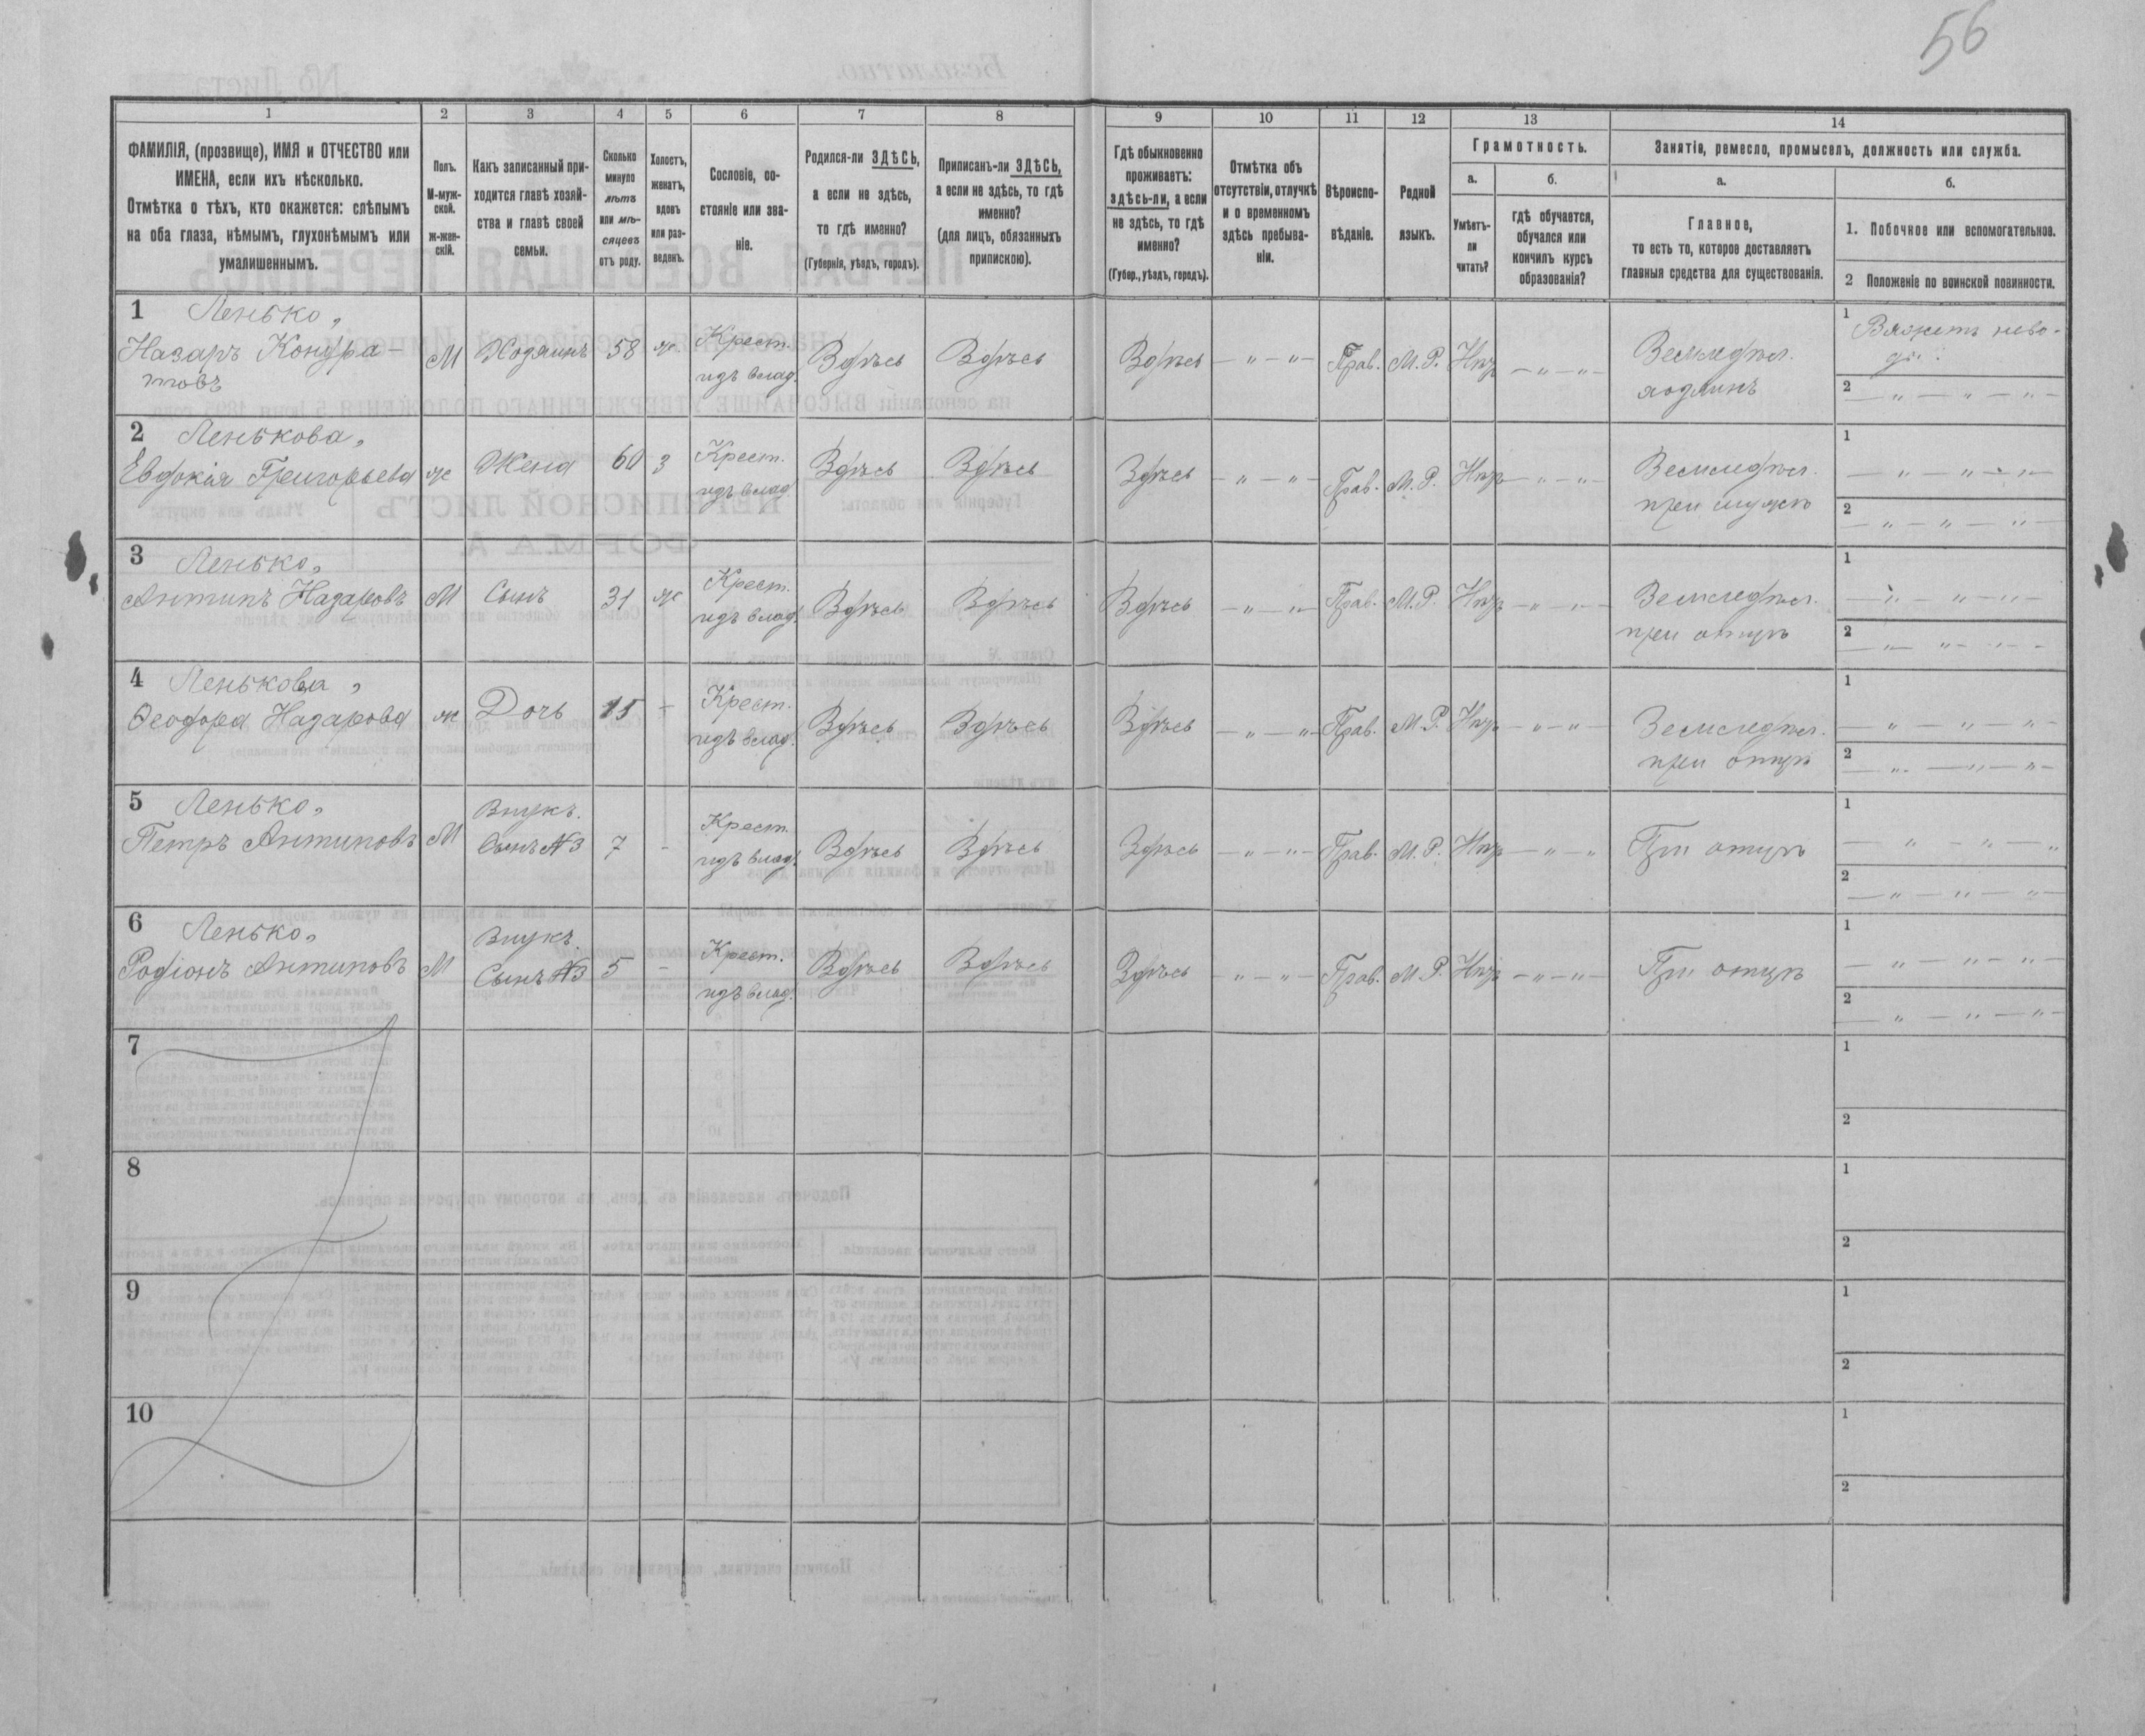 56
1
2
3
4
5
6
7
8
9
10
11
12
13
14
ФАМИЛІЯ, (прозвище), ИМЯ и ОТЧЕСТВО или
ИМЕНА, если ихъ нѣсколько.
Отмѣтка о тѣхъ, кто окажется: слѣпымъ
на оба глаза, нѣмымъ, глухонѣмымъ или
умалишеннымъ.
Полъ.
М-муж-
ской.
Ж-жен-
скій.
Какъ записанный при-
ходится главѣ хозяй-
ства и главѣ своей
семьи.
Сколько
минуло
лѣтъ
или мѣ-
сяцевъ
отъ роду.
Холостъ,
женатъ,
вдовъ
или раз-
веденъ.
Сословіе, со-
стояніе или зва-
ніе.
Родился-ли ЗДѢСЬ,
а если не здѣсь,
то гдѣ именно?
(Губернія, уѣздъ, городъ).
Приписанъ-ли ЗДѢСЬ,
а если не здѣсь, то гдѣ
именно?
(для лицъ, обязанныхъ
припискою).
Гдѣ обыкновенно
проживаетъ:
здѣсь-ли, а если
не здѣсь, то гдѣ
именно?
(Губер., уѣздъ, городъ).
Отмѣтка объ
отсутствіи, отлучкѣ
и о временномъ
здѣсь пребыва-
ніи.
Вѣроиспо-
вѣданіе.
Родной
языкъ.
Грамотность.
а.
Умѣетъ-
ли
читать?
б.
гдѣ обучается,
обучался или
кончилъ курсъ
образованія?
Занятіе, ремесло, промыселъ, должность или служба.
а.
Главное,
то есть то, которое доставляетъ
главныя средства для существованія.
б.
1. Побочное или вспомогательное.
2 Положеніе по воинской повинности.
1 Ленько,
Назаръ Кондра-
товъ
М
Хозяинъ
58
ж
Крест.
изъ влад.
Здѣсь
Здѣсь
Здѣсь
— " — " —
Прав.
М. Р.
Нѣтъ
— " — " —
Земледѣл.
хозяинъ
1 Вяжетъ нево-
ды.
2 — " — " — " —
2 Ленькова,
Евдокія Григорьева
ж
Жена
60
З
Крест.
изъ влад.
Здѣсь
Здѣсь
Здѣсь
— " — " —
Прав.
М. Р.
Нѣтъ
— " — " —
Земледѣл.
при мужѣ
1 — " — " — " —
2 — " — " — " —
3 Ленько,
Антипъ Назаровъ
М
Сынъ
31
ж
Крест.
изъ влад.
Здѣсь
Здѣсь
Здѣсь
— " — " —
Прав.
М. Р.
Нѣтъ
— " — " —
Земледѣл.
при отцѣ
1 — " — " — " —
2 — " — " — " —
4 Ленькова,
Ѳеодора Назарова
ж
Дочь
15
-
Крест.
изъ влад.
Здѣсь
Здѣсь
Здѣсь
— " — " —
Прав.
М. Р.
Нѣтъ
— " — " —
Земледѣл.
при отцѣ
1 — " — " — " —
2 — " — " — " —
5 Ленько,
Петръ Антиповъ
М
Внукъ.
Сынъ №3
7
-
Крест.
изъ влад.
Здѣсь
Здѣсь
Здѣсь
— " — " —
Прав.
М. Р.
Нѣтъ
— " — "
При отцѣ
1 — " — " — "
2 — " — " — "
6 Ленько,
Родіонъ Антиповъ
М
Внукъ.
Сынъ №3
5
-
Крест.
изъ влад.
Здѣсь
Здѣсь
Здѣсь
— " — " —
Прав.
М. Р.
Нѣтъ
— " — " —
При отцѣ
1 — " — " — " —
2 — " — " — " —
7
1
2
8
1
2
9
1
2
10
1
2